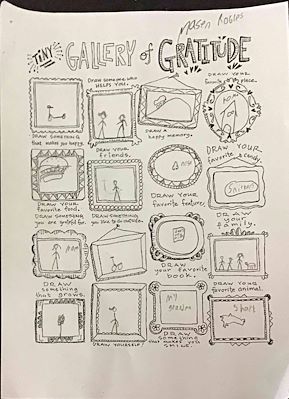 Masen Robles
TINY GALLERY of GRATITUDE
DRAW someone who HELPS YOU.
DRAW YOUR favorite place.
DRAW SOMETHING that makes you happy.
DRAW A happy memory.
DRAW YOUR friends.
DRAW YOUR favorite candy.
DRAW YOUR favorite food.
DRAW YOUR favorite feature.
DRAW SOMETHING you are grateful for.
DRAW SOMETHING you like to do outside.
DRAW your family.
mom
DRAW your favorite book.
DRAW something that grows.
my grandma
DRAW YOUR favorite animal.
Shark
DRAW YOURSELF!
DRAW something that makes you SMILE.